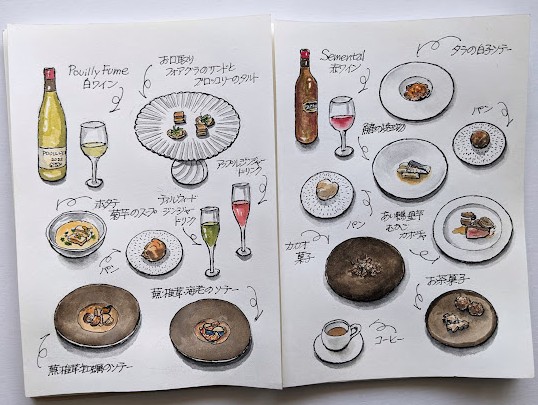 Pouilly Fume
白ワイン
お口取り
フォアグラのサンドと
ブロッコリーのタルト
アップルジンジャー
ドリンク
ホタテ
菊芋のスープ
ジンジャー
ドリンク
パン
蕪・椎茸・海老のソテー
蕪・椎茸・牡蠣のソテー
Semental
赤ワイン
タラの白子ソテー
パン
パン
カカオ
菓子
お茶菓子
コーヒー